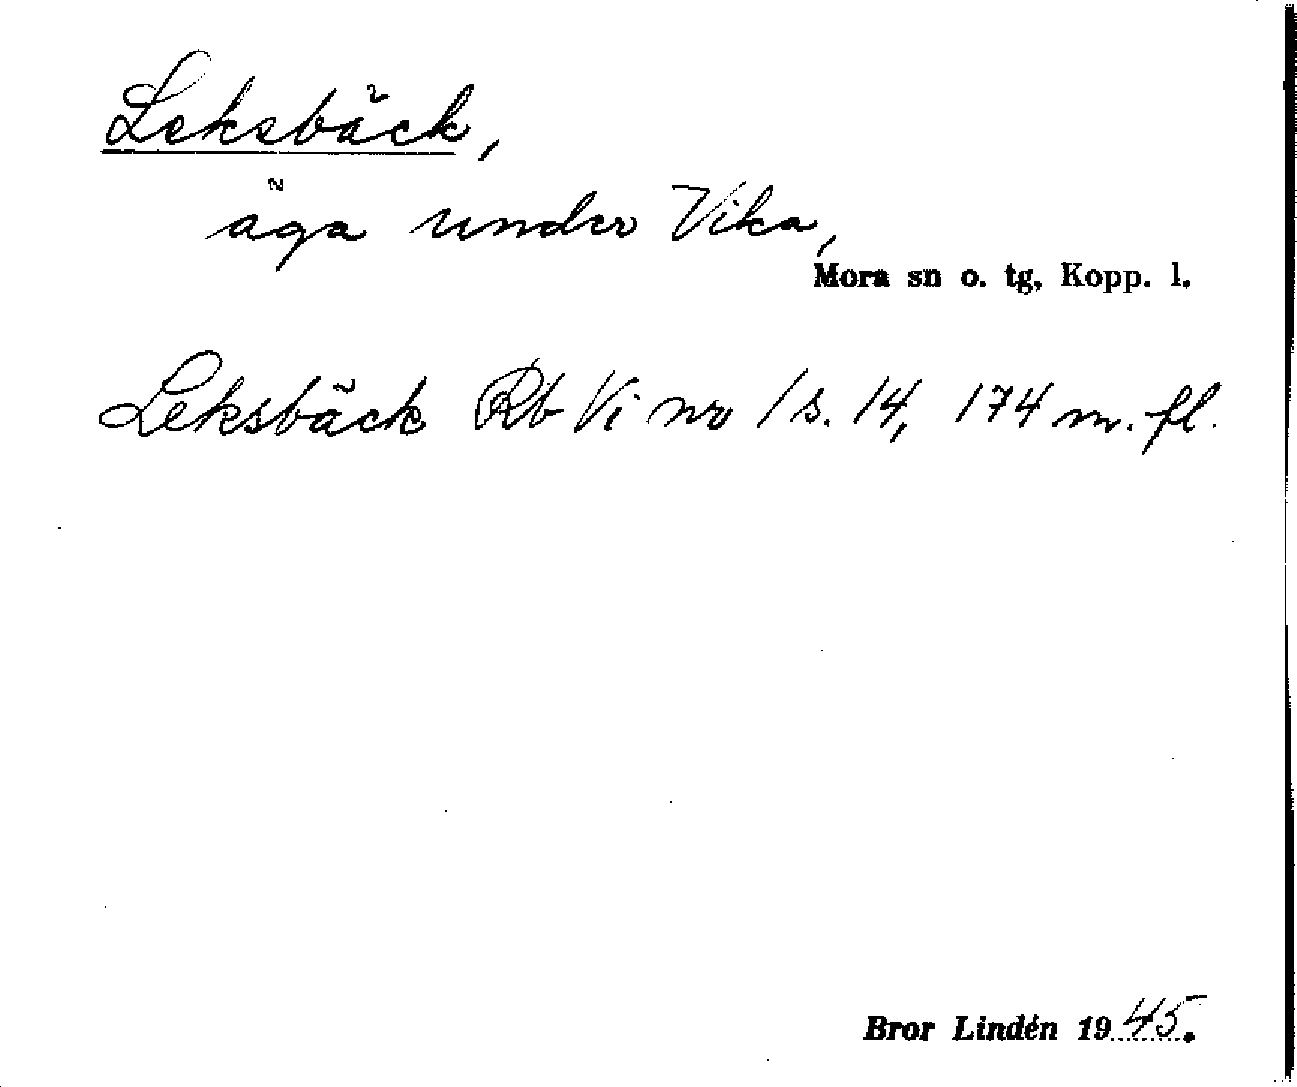 Leksbäck,
äga under Vika,
Mora sn o. tg, Kopp. l.
Leksbäck Rb Vi nr 1 s. 14, 174 m. fl.
Bror Lindén 1945.